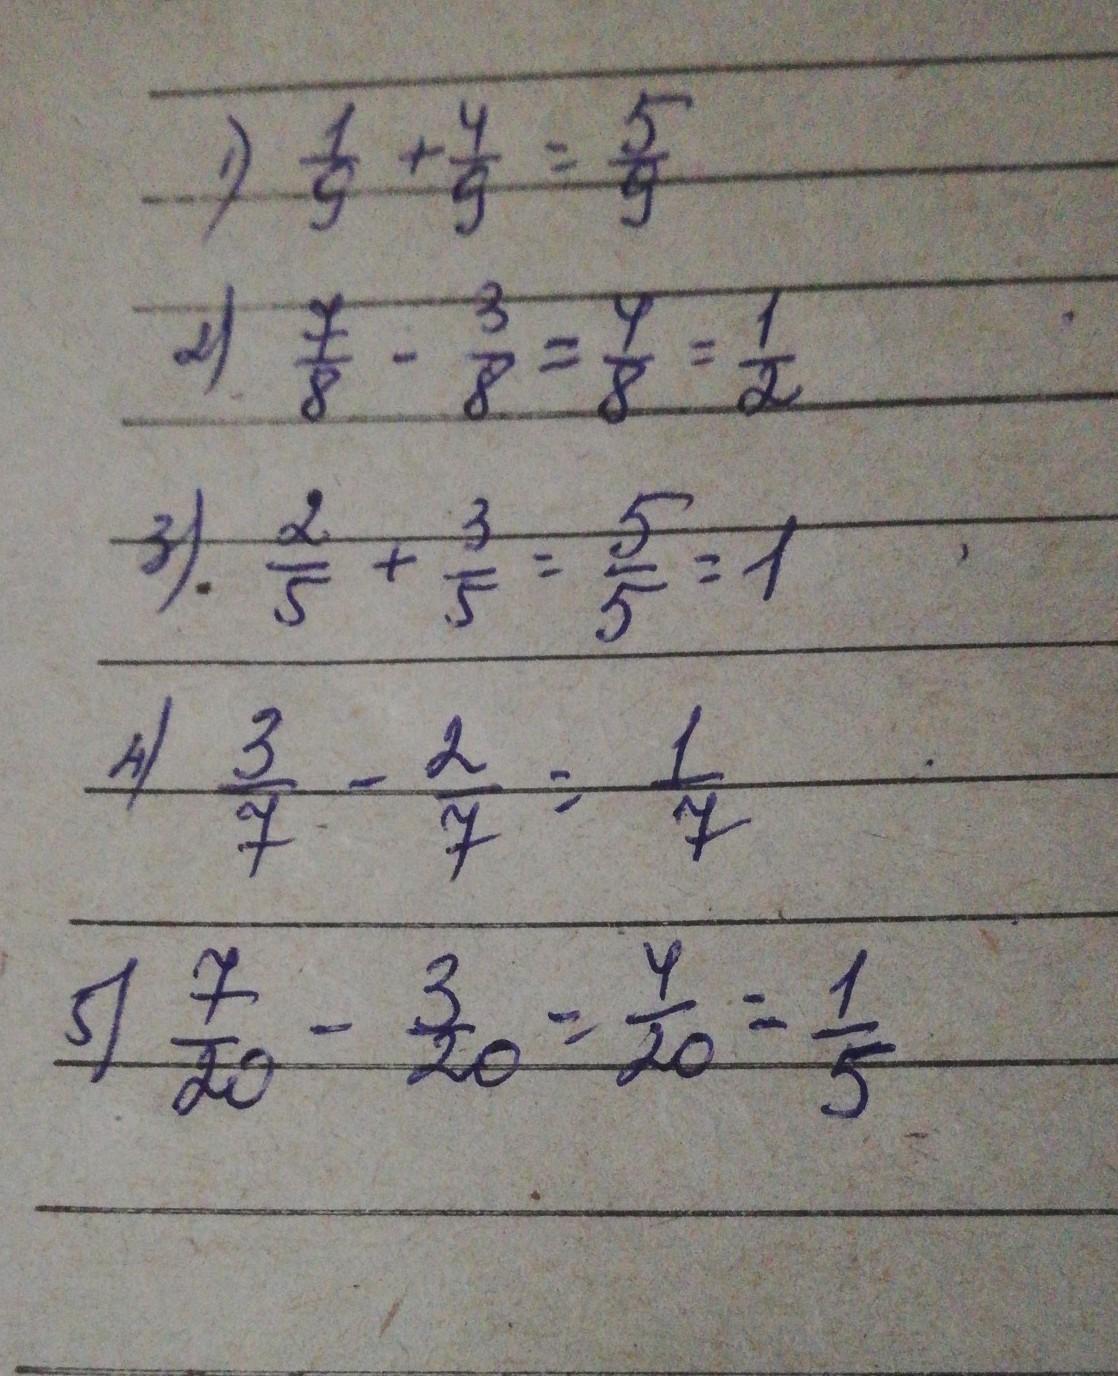 1) 1/9 + 4/9 = 5/9
2) 7/8 - 3/8 = 4/8 = 1/2
3) 2/5 + 3/5 = 5/5 = 1
4) 3/7 - 2/7 = 1/7
5) 7/20 - 3/20 = 4/20 = 1/5